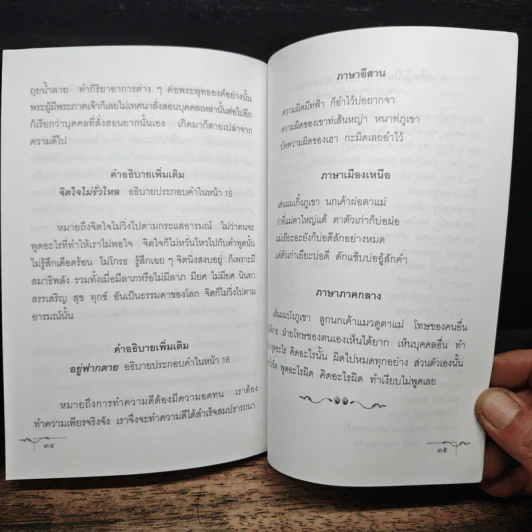 ถุยน้ำลาย ทำกิริยาอาการต่าง ๆ ต่อพระพุทธองค์อย่างนั้น
พระผู้มีพระภาคเจ้าก็เลยไม่เทศนาสั่งสอนบุคคลเหล่านั้นต่อไปอีก
ก็เรียกว่าบุคคลที่สั่งสอนยากนั้นเอง เกิดมาก็ตายเปล่าจาก
ความดีไป
คำอธิบายเพิ่มเติม
จิตใจไม่รั่วไหล อธิบายประกอบคำในหน้า 15
หมายถึงจิตใจไม่วิ่งไปตามกระแสอารมณ์ ไม่ว่าคนจะ
พูดอะไรที่ทำให้เราไม่พอใจ จิตใจก็ไม่หวั่นไหวไปกับคำพูดนั้น
ไม่รู้สึกเดือดร้อน ไม่โกรธ รู้สึกเฉย ๆ จิตนิ่งสงบอยู่ ก็เพราะมี
สมาธิพลัง รวมทั้งเมื่อมีลาภหรือไม่มีลาภ มียศ ไม่มียศ นินทา
สรรเสริญ สุข ทุกข์ อันเป็นธรรมดาของโลก จิตก็ไม่วิ่งไปตาม
อารมณ์นั้น
คำอธิบายเพิ่มเติม
อยู่ฟากตาย อธิบายประกอบคำในหน้า 18
หมายถึงการทำความดีต้องมีความอดทน เราต้อง
ทำความเพียรจริงจัง เราจึงจะทำความดีได้สำเร็จสมปรารถนา
๓๔
ภาษาอีสาน
ความผิดมีทฟ้า ก็อำไว้บ่อยากจา
ความผิดของเราท่เส้นหญ้า หนาท่ภูเขา
บัดความผิดของเฮา กะมิดเลยอำไว้
ภาษาเมืองเหนือ
เส้นผมกึ้งภูเขา นกเค้าผ่อตาแม่
ว่าอี่แม่ตาใหญ่แต้ ตาตัวเก่าก็บ่อผ่อ
แม่เยียะอะยังก็บ่อดีสักอย่างหมด
แต่ตัวเก่าเยียะบ่อดี ดักแซ็บบ่อจู้สักคำ
ภาษาภาคกลาง
เส้นผมบังภูเขา ลูกนกเค้าแมวดูตาแม่ โทษของคนอื่น
ฝ่ายโทษของตนเองเห็นได้ยาก เห็นบุคคลอื่น ทำ
พูดอะไร คิดอะไรนั้น ผิดไปหมดทุกอย่าง ส่วนตัวเองนั้น
พูดอะไรผิด คิดอะไรผิด ทำเงียบไม่พูดเลย
๓๕